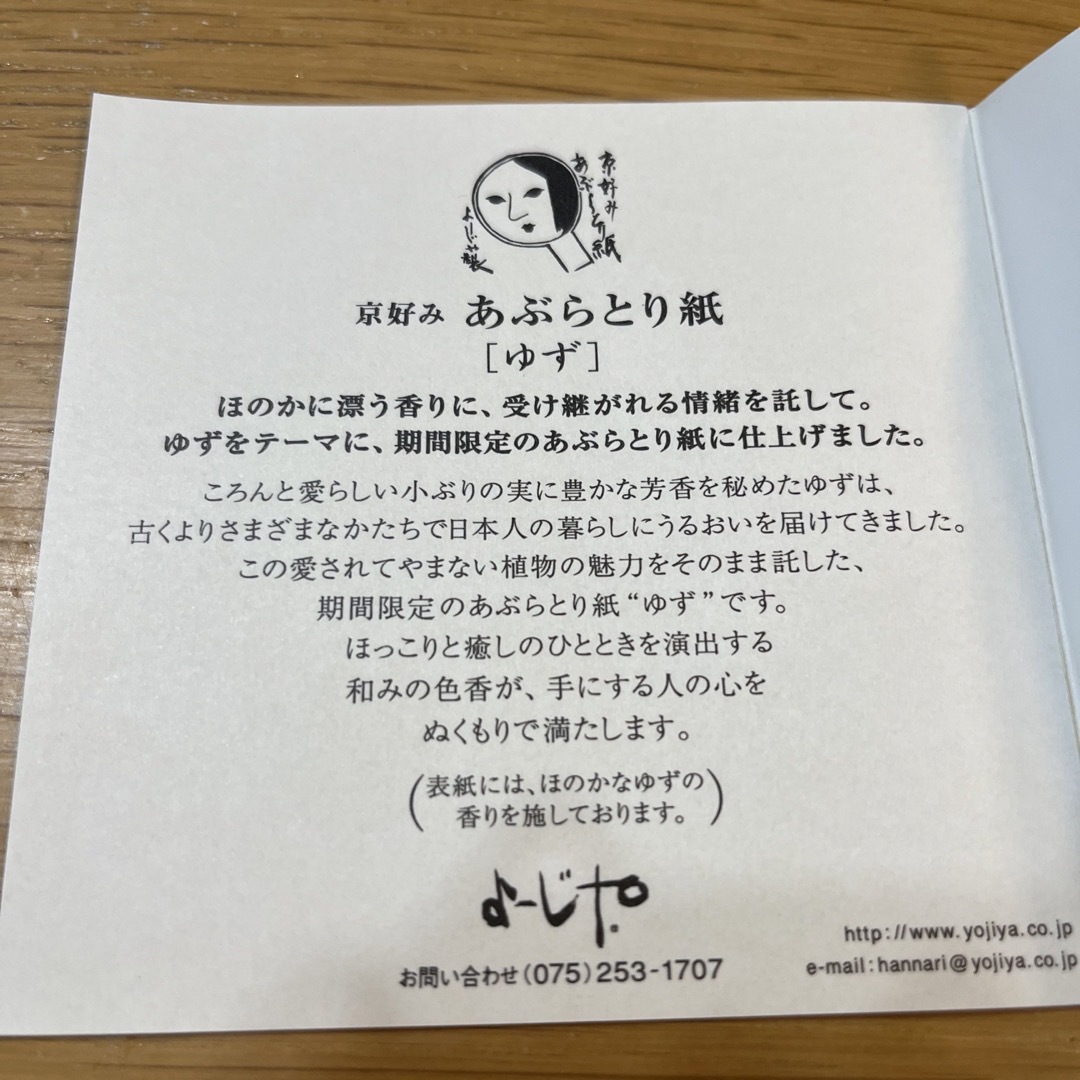 京好み
あぶらとり紙
よーじや製
京好み あぶらとり紙
［ゆず］
ほのかに漂う香りに、受け継がれる情緒を託して。
ゆずをテーマに、期間限定のあぶらとり紙に仕上げました。
ころんと愛らしい小ぶりの実に豊かな芳香を秘めたゆずは、
古くよりさまざまなかたちで日本人の暮らしにうるおいを届けてきました。
この愛されてやまない植物の魅力をそのまま託した、
期間限定のあぶらとり紙“ゆず”です。
ほっこりと癒しのひとときを演出する
和みの色香が、手にする人の心を
ぬくもりで満たします。
（表紙には、ほのかなゆずの
香りを施しております。）
よーじや®
お問い合わせ（075）253-1707
http://www.yojiya.co.jp
e-mail:hannari@yojiya.co.jp